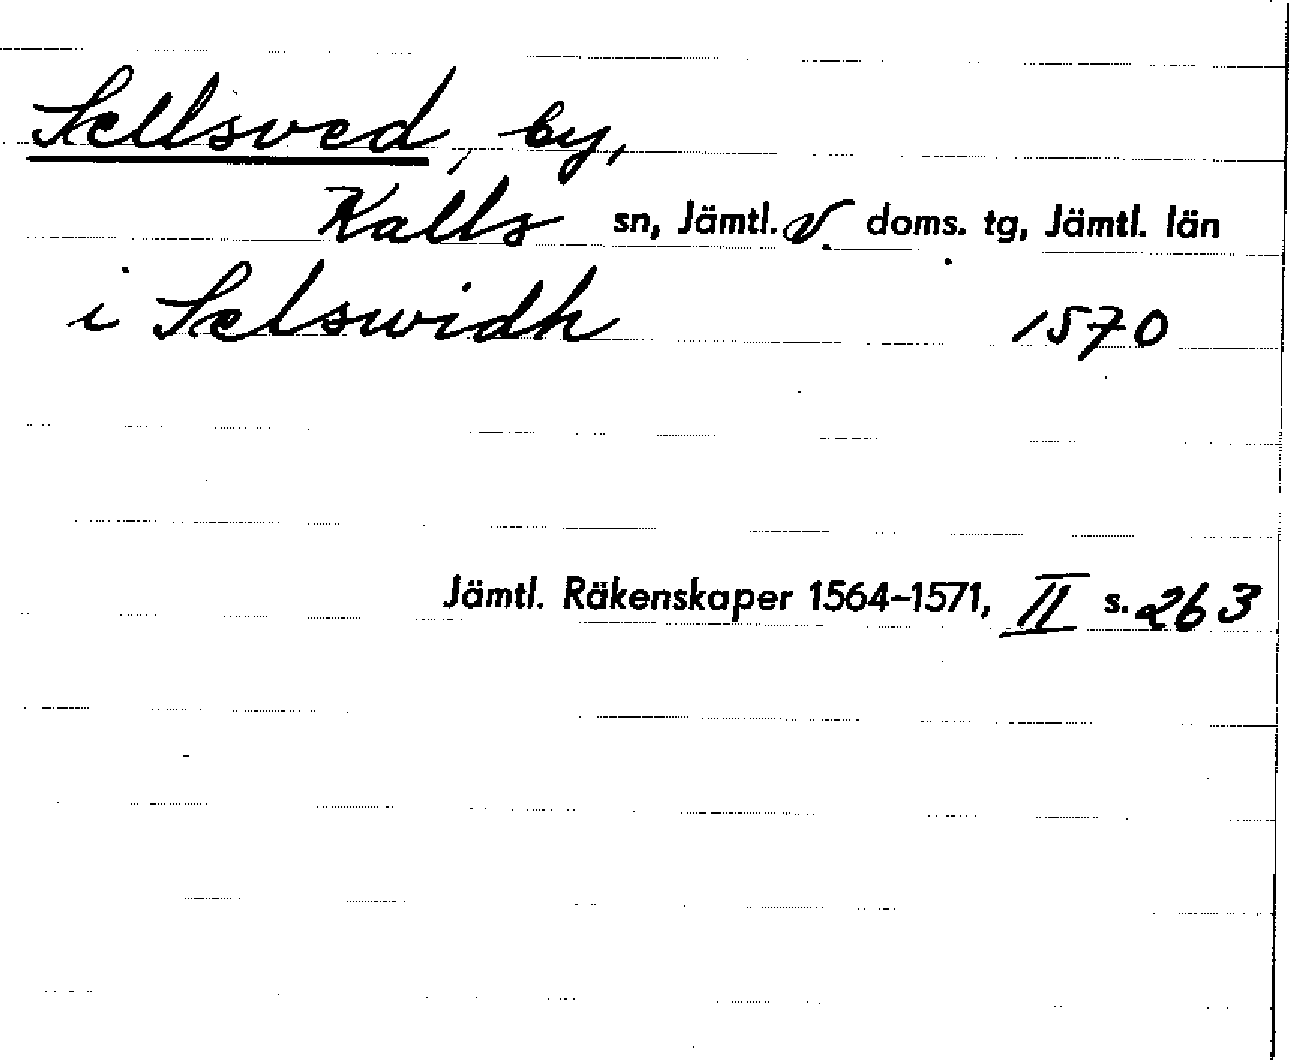 Sellsved, by,
Kalls sn, Jämtl. V. doms. tg, Jämtl. län
i Selswidh 1570
Jämtl. Räkenskaper 1564-1571, II s. 263